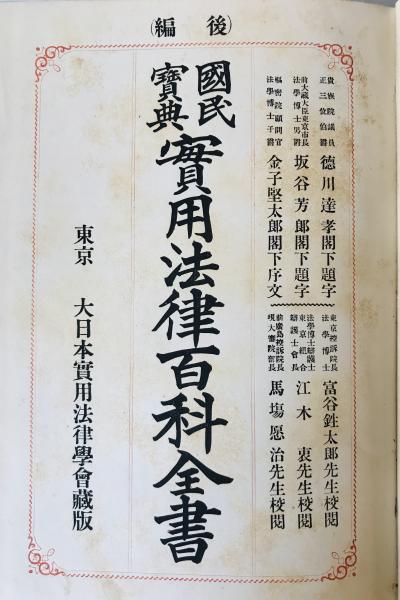 (後編)
貴族院議員
正三位伯爵
徳川達孝閣下題字
前大蔵大臣東京市長
法學博士男爵
坂谷芳郎閣下題字
樞密院顧問官
法學博士子爵
金子堅太郎閣下序文
東京控訴院長
法學博士
富谷鉎太郎先生校閲
法學博士辯護士
東京組合
辯護士會長
江木衷先生校閲
前廣島控訴院長
現大審院部長
馬場愿治先生校閲
國民
寶典
實用法律百科全書
東京 大日本實用法律學會藏版